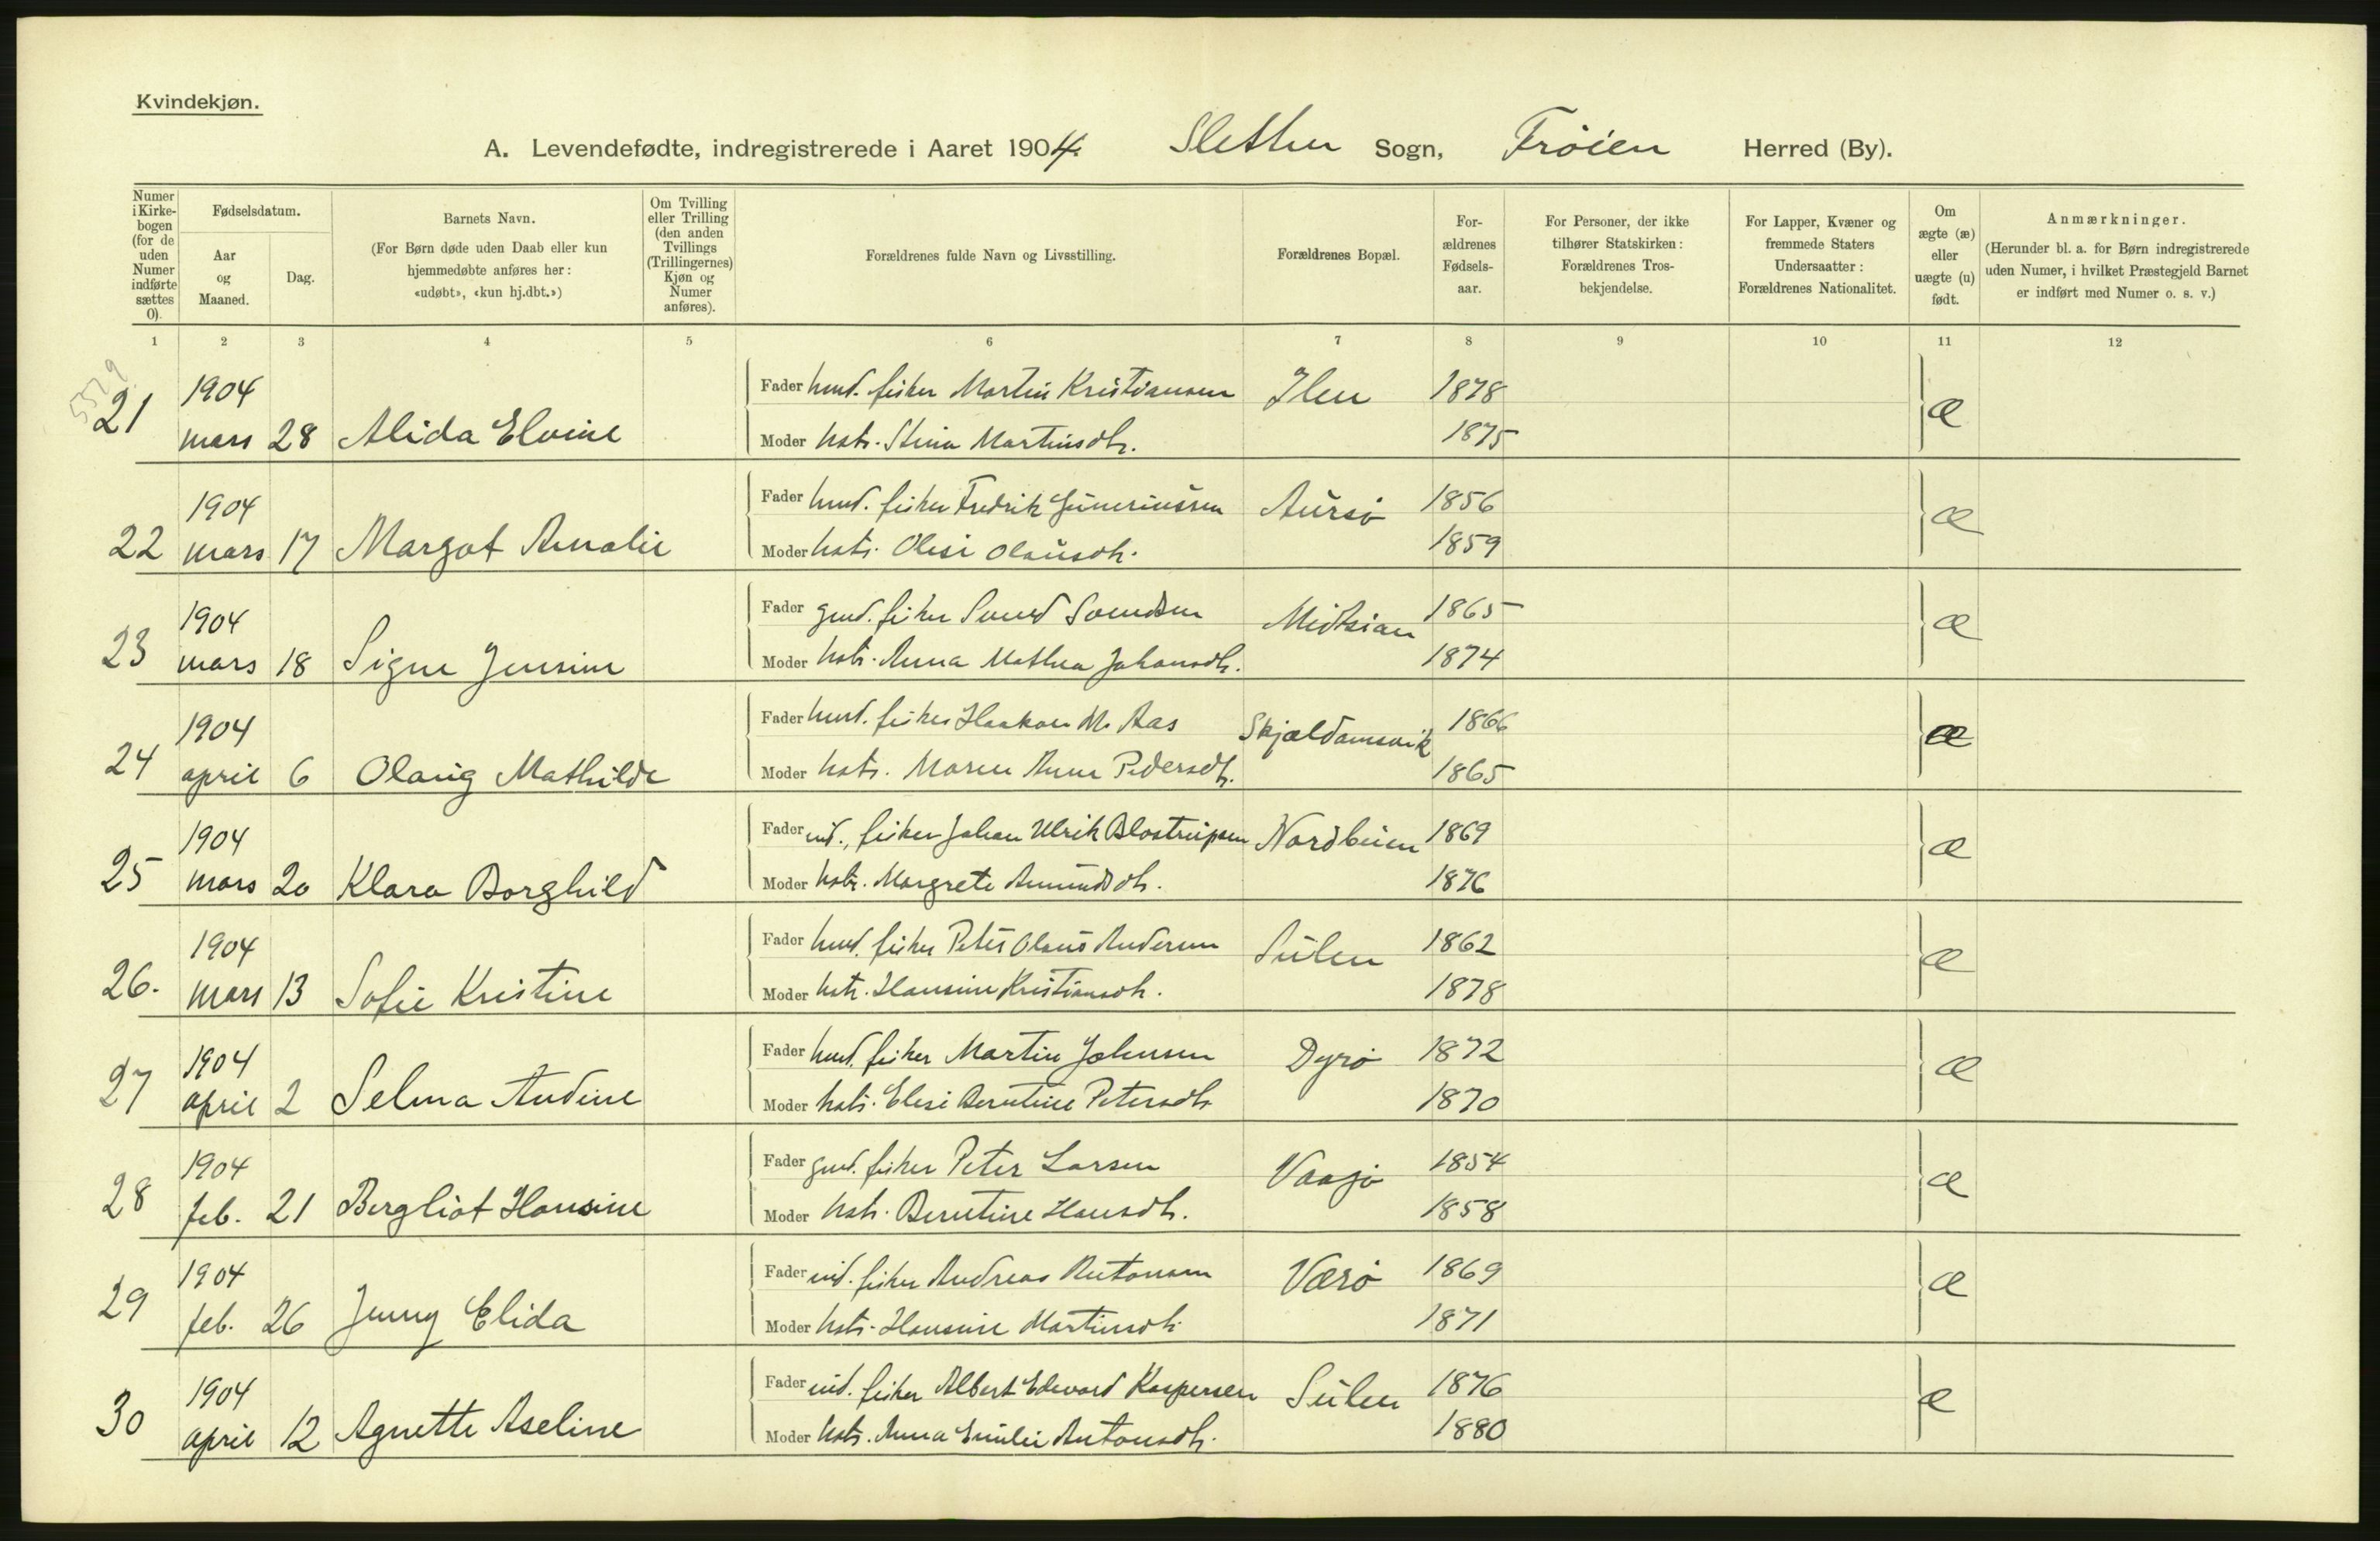 Kvindekjøn.
A. Levendefødte, indregistrerede i Aaret 1904. Sletten Sogn, Frøien Herred (By).
Numer i Kirkebogen (for de uden Numer indførte sættes 0).
Fødselsdatum.
Aar og Maaned.
Dag.
Barnets Navn.
(For Børn døde uden Daab eller kun hjemmedøbte anføres her: «udøbt», «kun hj.dbt.»)
Om Tvilling eller Trilling (den anden Tvillings (Trillingernes) Kjøn og Numer anføres).
Forældrenes fulde Navn og Livsstilling.
Forældrenes Bopæl.
Forældrenes Fødselsaar.
For Personer, der ikke tilhører Statskirken: Forældrenes Trosbekjendelse.
For Lapper, Kvæner og fremmede Staters Undersaatter: Forældrenes Nationalitet.
Om ægte (æ) eller uægte (u) født.
Anmærkninger.
(Herunder bl. a. for Børn indregistrerede uden Numer, i hvilket Præstegjeld Barnet er indført med Numer o. s. v.)
1 2 3 4 5 6 7 8 9 10 11 12
5529
1904 Fader husm. fisker Martin Kristiansen Ilen 1878 æ
21 mars 28 Alida Elvine Moder hstr. Stina Martinsdtr. 1875
1904 Fader husm. fisker Fredrik Aursø 1856 æ
22 mars 17 Margot Amalie Moder hstr. Olesi Olausdtr. 1859
1904 Fader gmd. fisker Svend Svendsen Midtsian 1865 æ
23 mars 18 Signe Jensine Moder hstr. Anna Mathea Johansdtr. 1874
1904 Fader husm. fisker Haakon M. Aas Skjældamsvik 1866 æ
24 april 6 Olaug Mathilde Moder hstr. Maren Anna Pedersdtr. 1865
1904 Fader ind., fisker Johan Ulrik Blostrupsen Nordbuen 1869 æ
25 mars 20 Klara Borghild Moder hstr. Margrete Amundsdtr. 1876
1904 Fader husm. fisker Peter Olaus Andersen Sulen 1862 æ
26. mars 13 Sofie Kristine Moder hstr. Hansine Kristiansdtr. 1878
1904 Fader husm. fisker Martin Johnsen Dyrø 1872 æ
27 april 2 Selma Andine Moder hstr. Elesi Berntine Petersdtr. 1870
1904 Fader gmd. fisker Peter Larsen Vaagø 1854 æ
28 feb. 21 Bergliot Hansine Moder hstr. Berntine Hansdtr. 1858
1904 Fader ind. fisker Andreas Antonsen Værø 1869 æ
29 feb. 26 Jenny Elida Moder hstr. Hansine Martinsdtr. 1871
1904 Fader ind. fisker Albert Edward Kaspersen Sulen 1876 æ
30 april 12 Agnette Aseline Moder hstr. Anna Emilie Antonsdtr. 1880